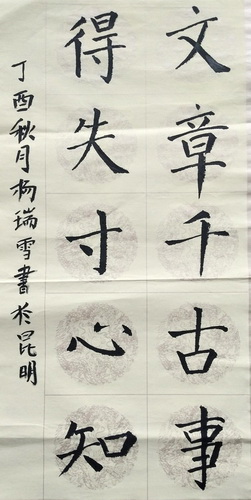 文章千古事
得失寸心知
丁酉秋月杨瑞雪書於昆明